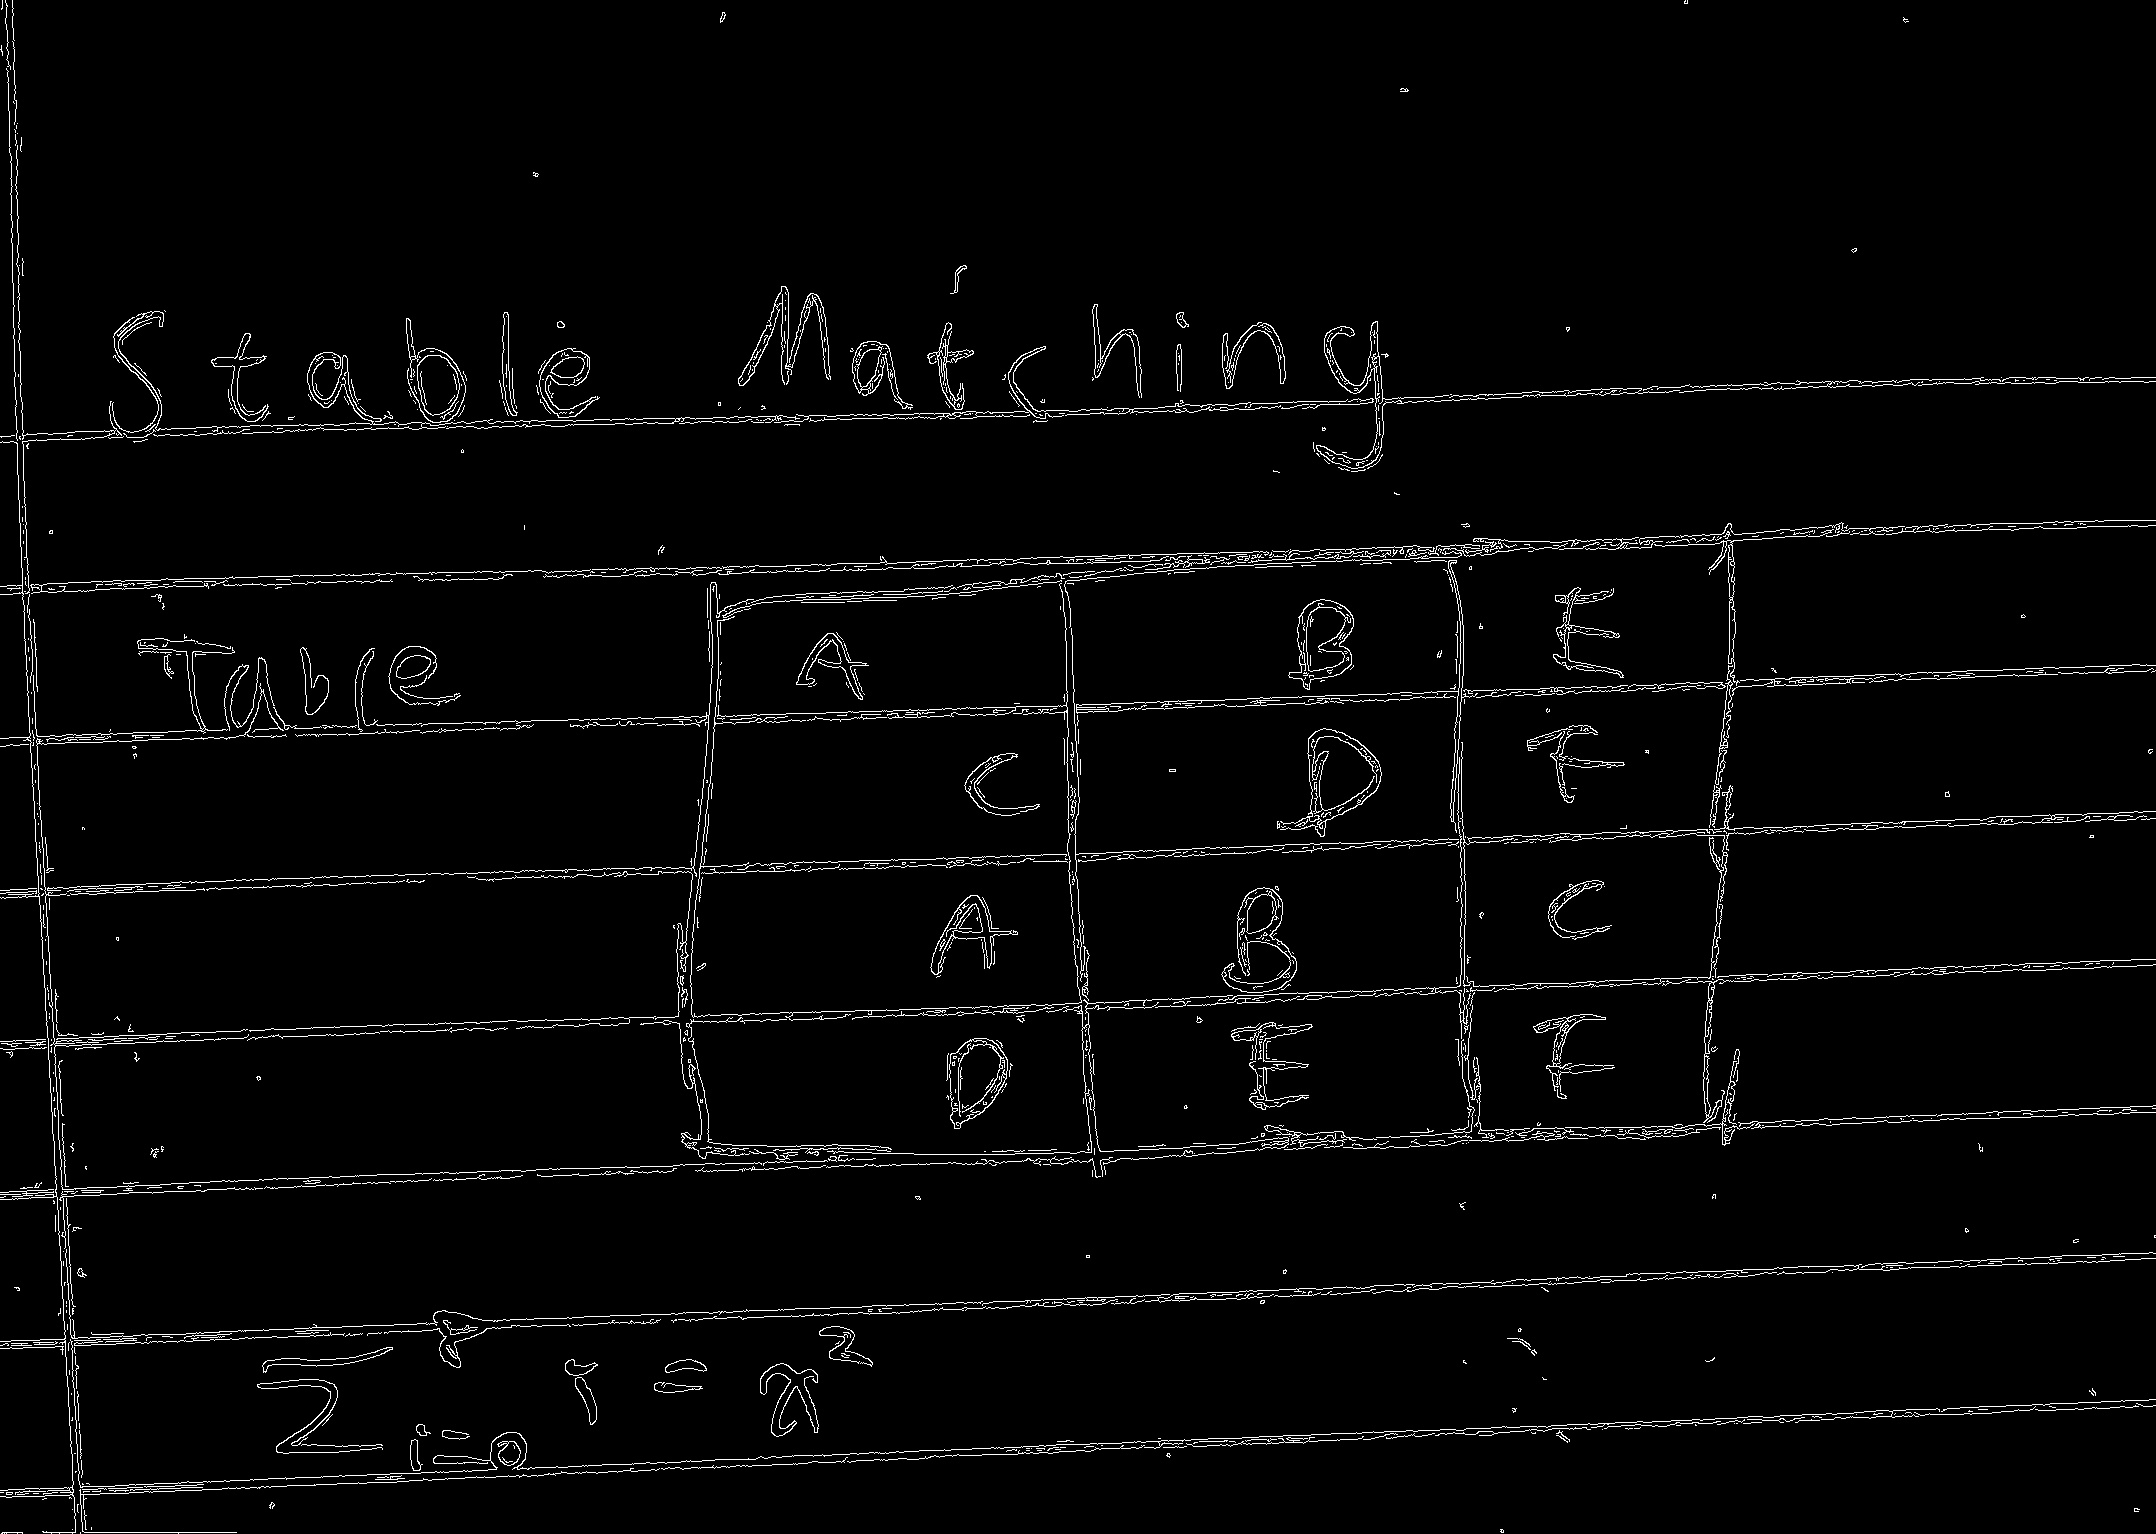 Stable Matching
Table
A B E
C D F
A B C
D E F
∑ 8 i=0 i = x²